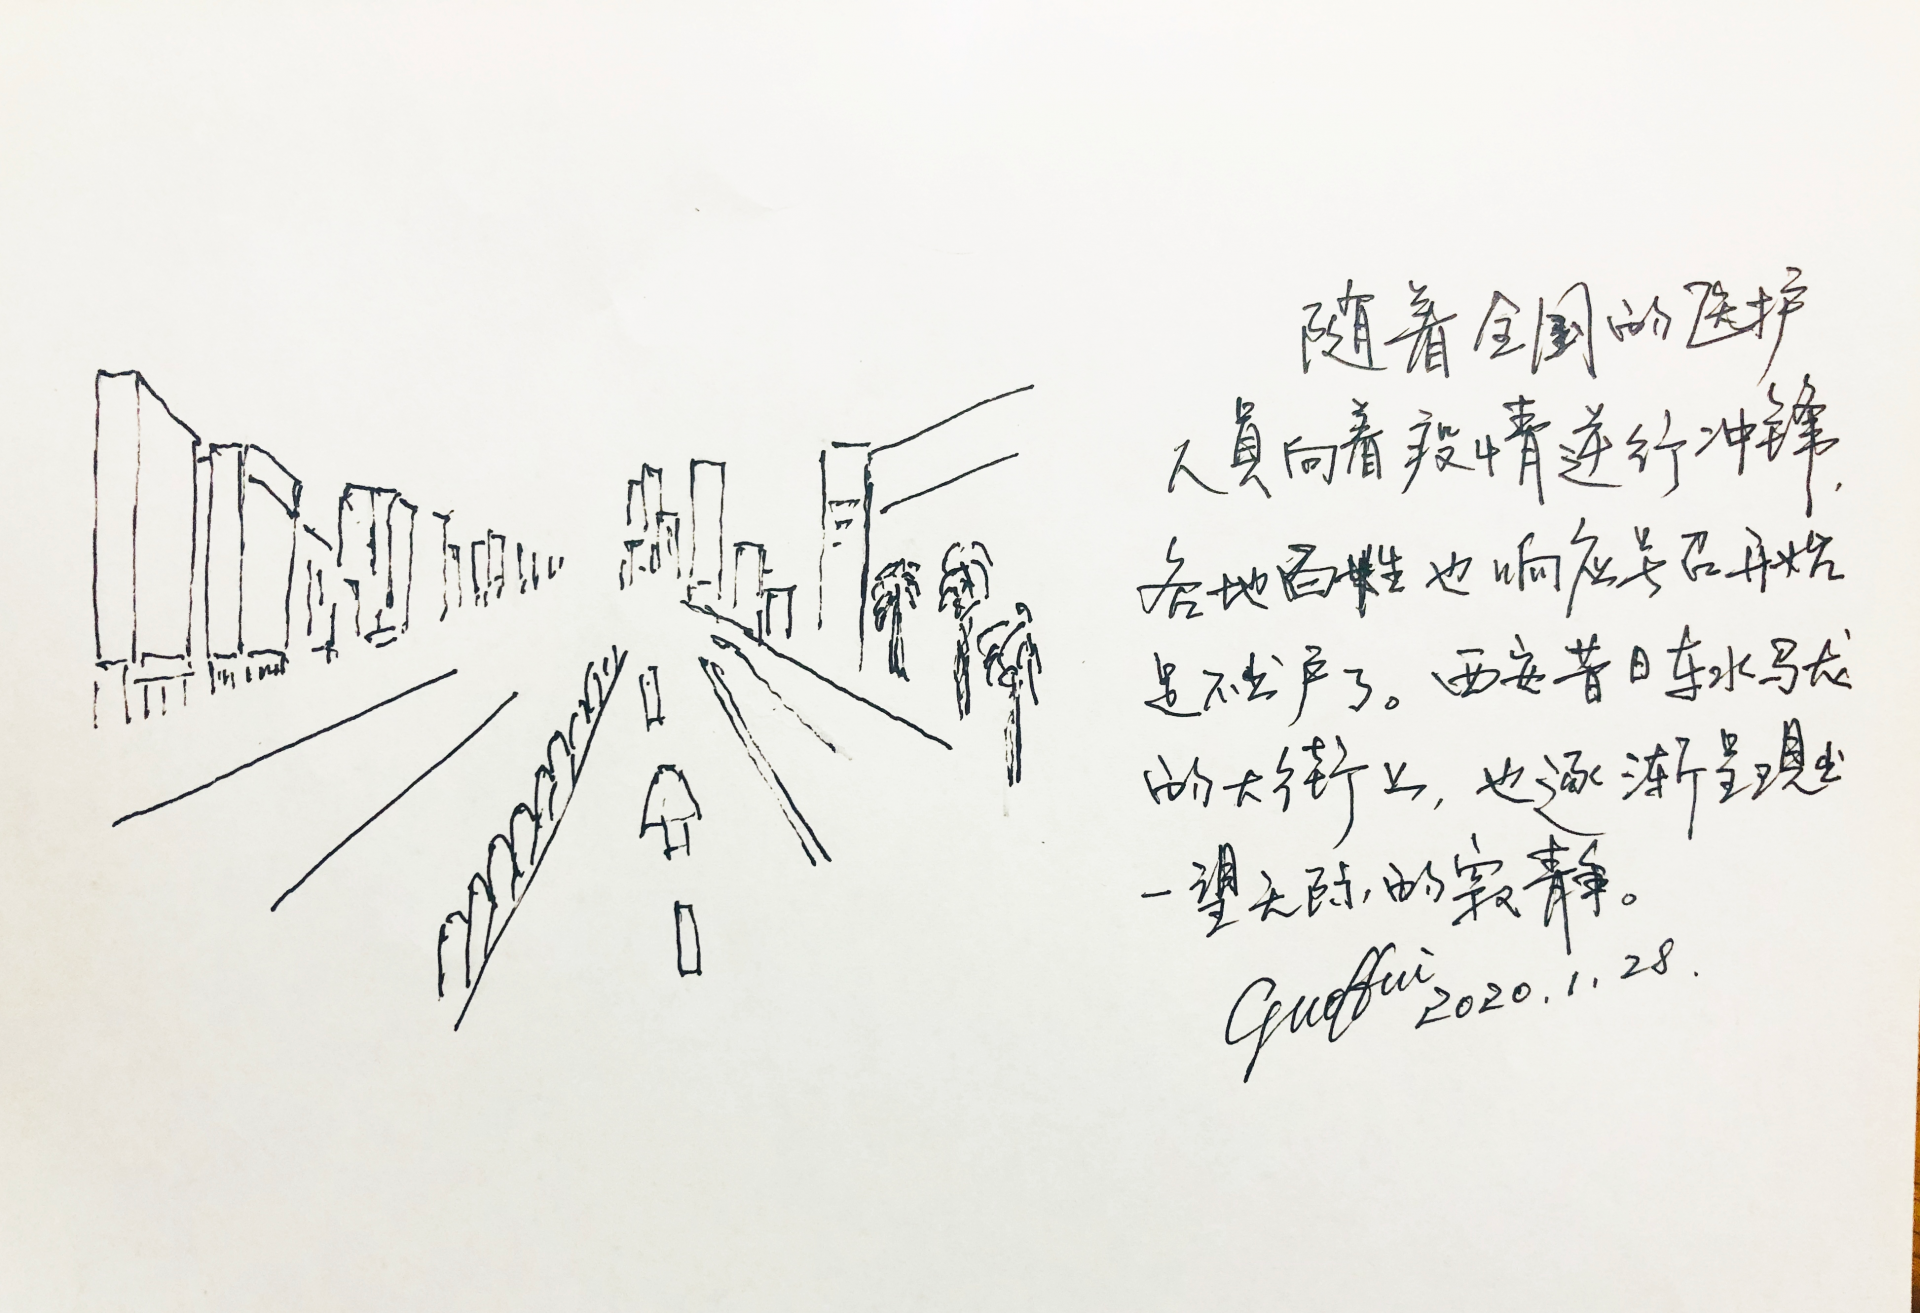 随着全国的医护
人员向着疫情逆行冲锋,
各地百姓也响应号召开始
足不出户了。西安昔日车水马龙
的大街上,也逐渐呈现出
一望无际的寂静。
GuoHui 2020.1.28.